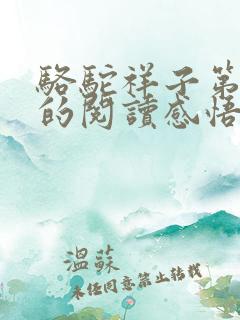 駱駝祥子第
的閱讀感悟
溫蘇
未經同意禁止轉載